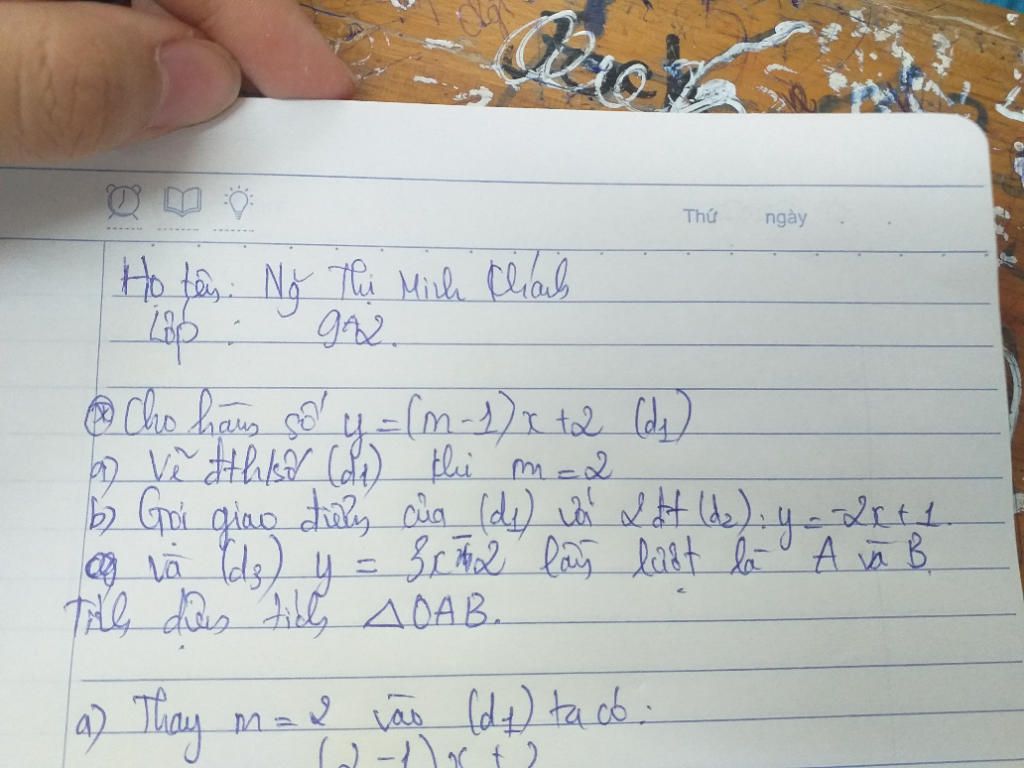 Thứ ngày . .
Họ tên: Ng̃ Thị Minh Khánh
Lớp : 9A2.
Cho hàm số y = (m-1)x+2 (d1)
a) Vẽ đths (d1) khi m = 2
b) Gọi giao điểm của (d1) với 2 đt (d2): y = -2x+1.
và (d3) y = 3x-2 lần lượt là A và B
Tính diện tích △OAB.
a) Thay m = 2 vào (d1) ta có:
(2-1)x + 2